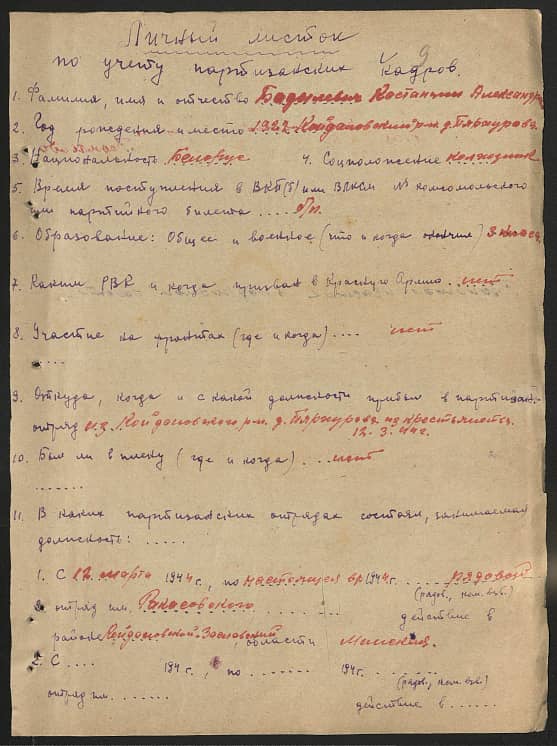 Личный листок
по учету партизанских кадров.
1. Фамилия, имя и отчество Костантин Александр
2. Год рождения и место 1927 Койдановский р-н д.
3. Национальность Белорус 4. Соцположение колхозник
5. Время поступления в ВКП(б) или ВЛКСМ № комсомольского
или партийного билета .... б/п.
6. Образование: Общее и военное (что и когда окончил) 3 класса
7. Каким РВК и когда призван в Красную Армию .. нет
8. Участие на фронтах (где и когда) .... нет
.....
9. Откуда, когда и с какой должности прибыл в партизан.
отряд из Койдановского р-н. д. из крестьянства.
12.3.44г.
10. Был ли в плену (где и когда) ... нет
.......
11. В каких партизанских отрядах состоял, занимаемая
должность: .....
1. С 12 марта 1944 г., по настоящее вр. 1944. рядовой
(рядов., ком. взв.)
В отряд им. действие в
районе области Минский.
2. С .... 194 г., по ....... 194 г. .......
(рядов., ком. вз.)
отряд им. ....... действие в ......